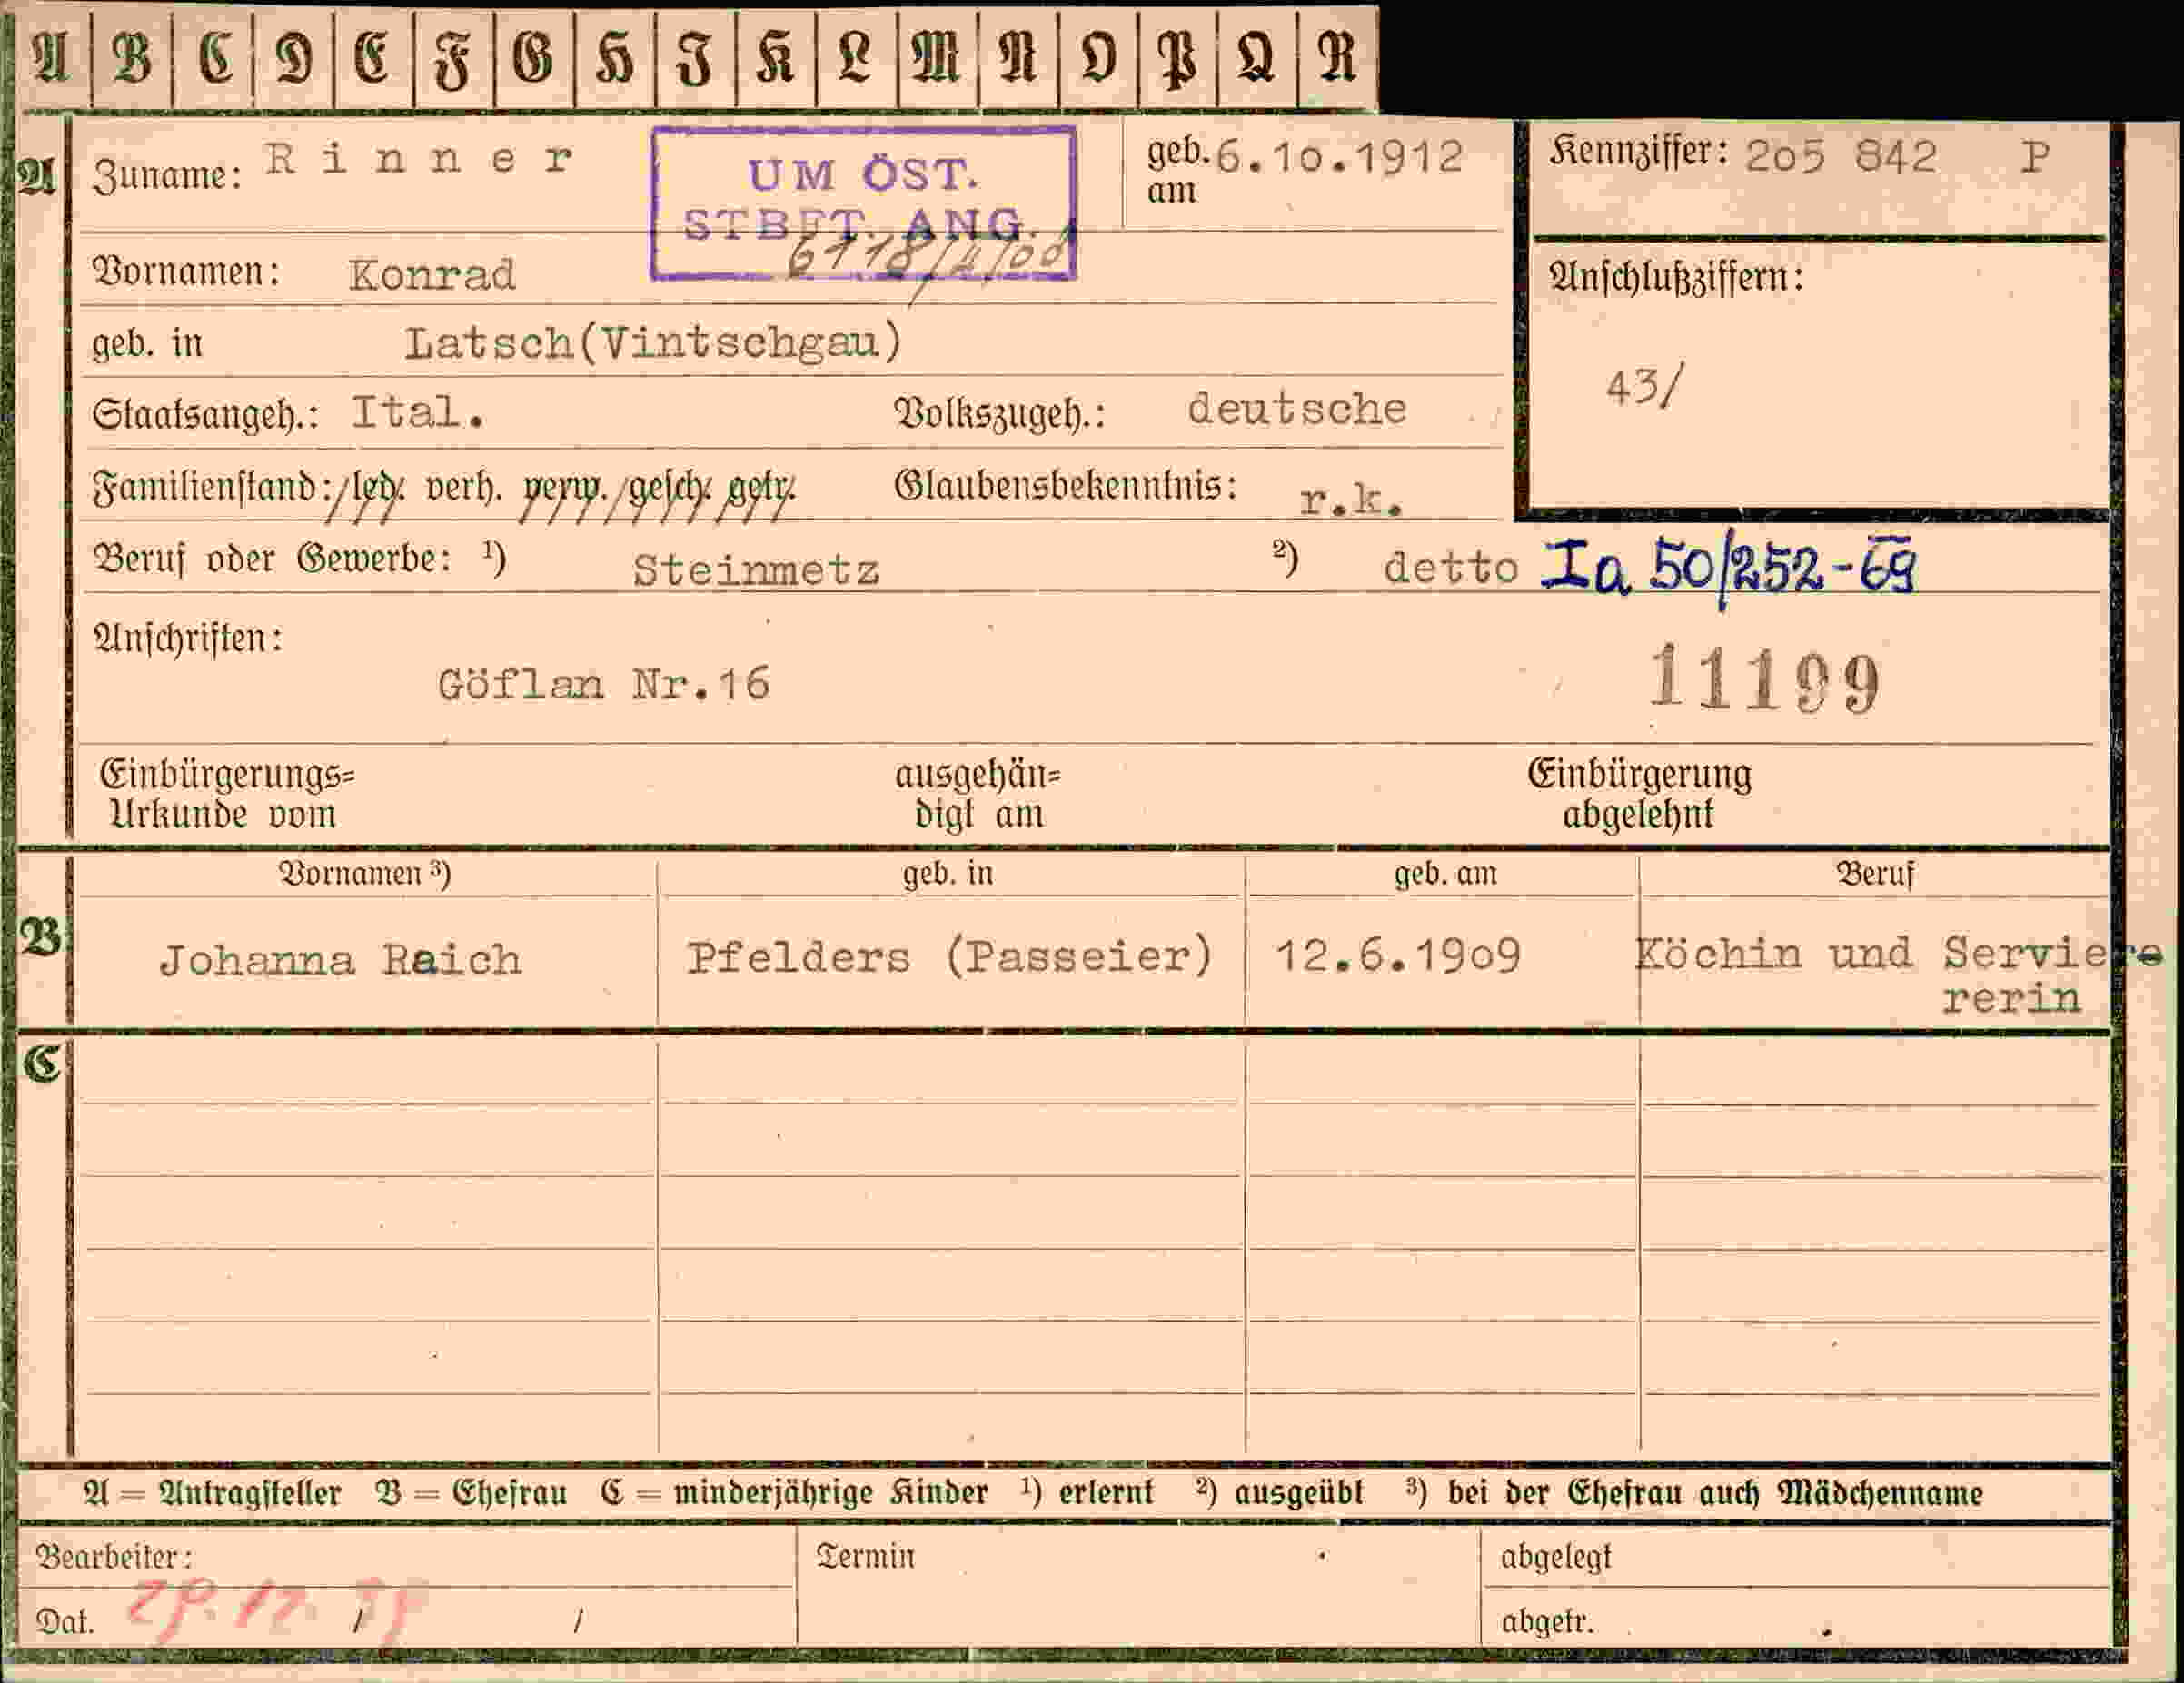 A B C D E F G H J K L M N O P Q R
A
Zuname: Rinner
UM ÖST.
STBFT. ANG.
geb. am 6.10.1912
Kennziffer: 205 842 P
Vornamen: Konrad
Anschlußziffern:
43/
geb. in Latsch(Vintschgau)
Staatsangeh.: Ital. Volkszugeh.: deutsche
Familienstand: led. verh. verw. gesch. getr. Glaubensbekenntnis: r.k.
Beruf oder Gewerbe: ¹) Steinmetz ²) detto Ia 50/252-69
Anschriften:
Göflan Nr.16
11199
Einbürgerungs=
Urkunde vom
ausgehän=
digt am
Einbürgerung
abgelehnt
B
Vornamen ³) geb. in geb. am Beruf
Johanna Raich Pfelders (Passeier) 12.6.1909 Köchin und Serviere
rerin
C
A = Antragsteller B = Ehefrau C = minderjährige Kinder ¹) erlernt ²) ausgeübt ³) bei der Ehefrau auch Mädchenname
Bearbeiter: Termin abgelegt
Dat. / / abgetr.